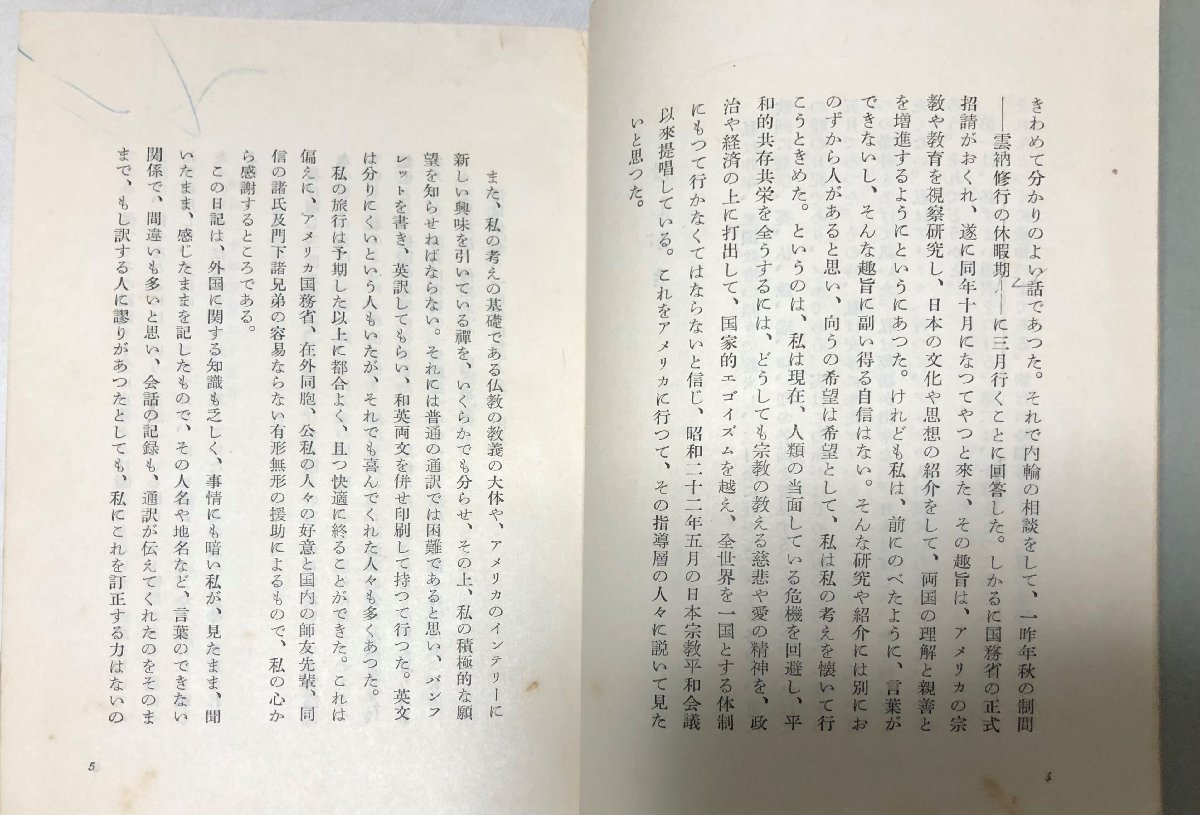 きわめて分かりのよい話であつた。それで内輪の相談をして、一昨年秋の制間
――雲衲修行の休暇期――に三月行くことに回答した。しかるに国務省の正式
招請がおくれ、遂に同年十月になつてやつと来た、その趣旨は、アメリカの宗
教や教育を視察研究し、日本の文化や思想の紹介をして、両国の理解と親善と
を増進するようにというにあつた。けれども私は、前にのべたように、言葉が
できないし、そんな趣旨に副い得る自信はない。そんな研究や紹介には別にお
のずから人があると思い、向うの希望は希望として、私は私の考えを懐いて行
こうときめた。というのは、私は現在、人類の当面している危機を回避し、平
和的共存共栄を全うするには、どうしても宗教の教える慈悲や愛の精神を、政
治や経済の上に打出して、国家的エゴイズムを越え、全世界を一国とする体制
にもつて行かなくてはならないと信じ、昭和二十二年五月の日本宗教平和会議
以來提唱している。これをアメリカに行つて、その指導層の人々に説いて見た
いと思つた。
4
また、私の考えの基礎である仏教の教義の大体や、アメリカのインテリーに
新しい興味を引いている禪を、いくらかでも分らせ、その上、私の積極的な願
望を知らせねばならない。それには普通の通訳では困難であると思い、パンフ
レットを書き、英訳してもらい、和英両文を併せ印刷して持つて行つた。英文
は分りにくいという人もいたが、それでも喜んでくれた人々も多くあつた。
私の旅行は予期した以上に都合よく、且つ快適に終ることができた。これは
偏えに、アメリカ国務省、在外同胞、公私の人々の好意と国内の師友先輩、同
信の諸氏及門下諸兄弟の容易ならない有形無形の援助によるもので、私の心か
ら感謝するところである。
この日記は、外国に関する知識も乏しく、事情にも暗い私が、見たまま、聞
いたまま、感じたままを記したもので、その人名や地名など、言葉のできない
関係で、間違いも多いと思い、会話の記録も、通訳が伝えてくれたのをそのま
まで、もし訳する人に謬りがあつたとしても、私にこれを訂正する力はないの
5